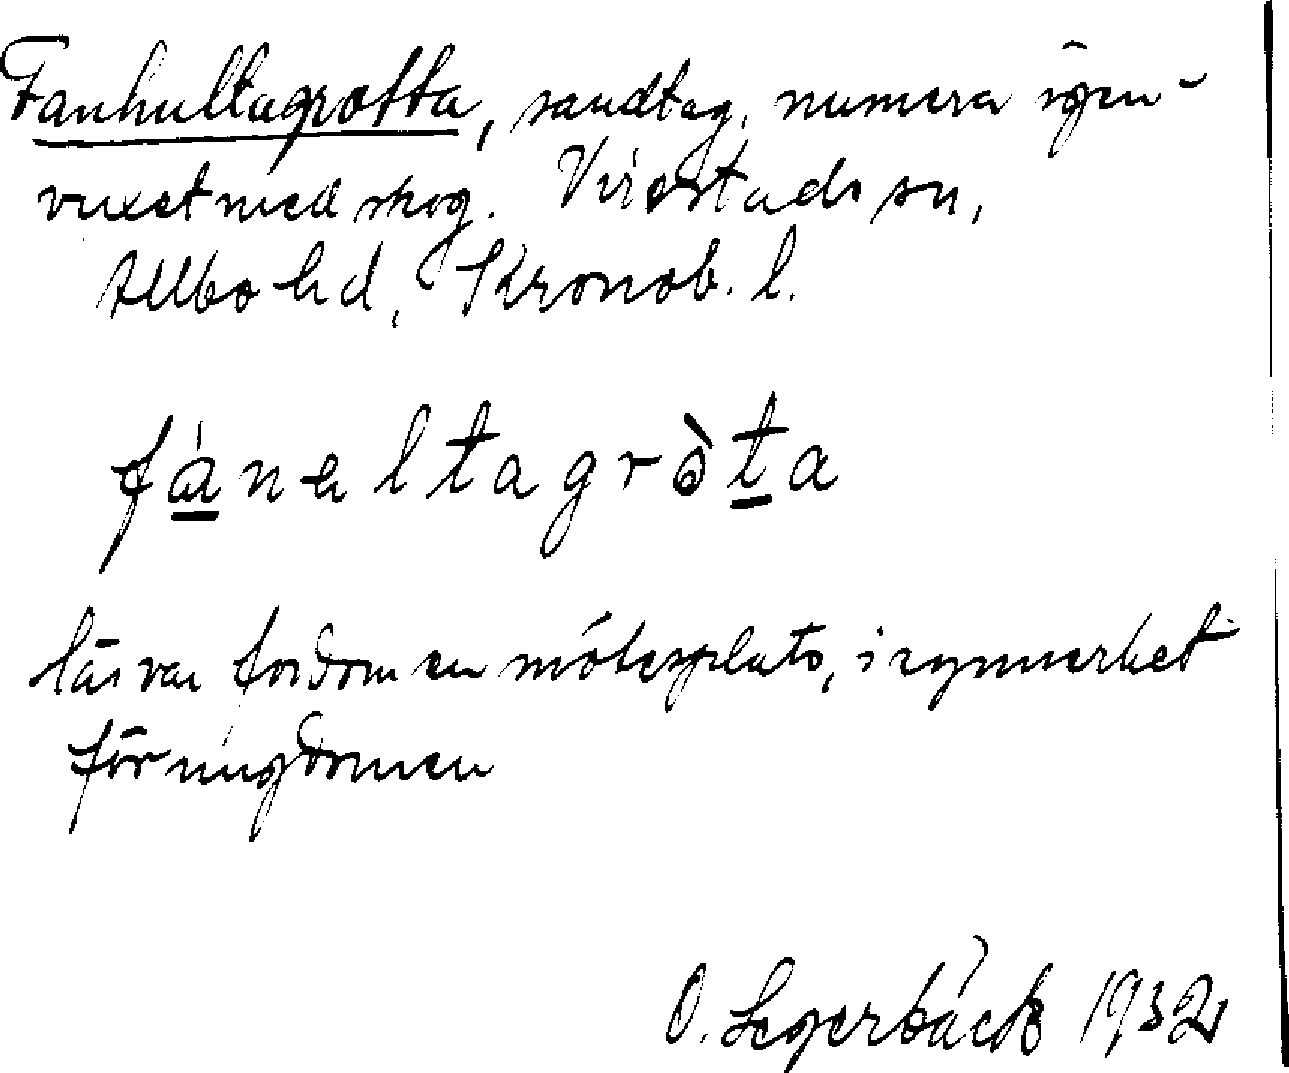 Fanhultagrotta, sandtag, numera igen-
vuxet med skog. Virestads sn,
Allbo hd, Kronob. l.
fánaltagròta
lär var fordom en mötesplats, i synnerhet
för ungdomen
O. Segerbäck 1932